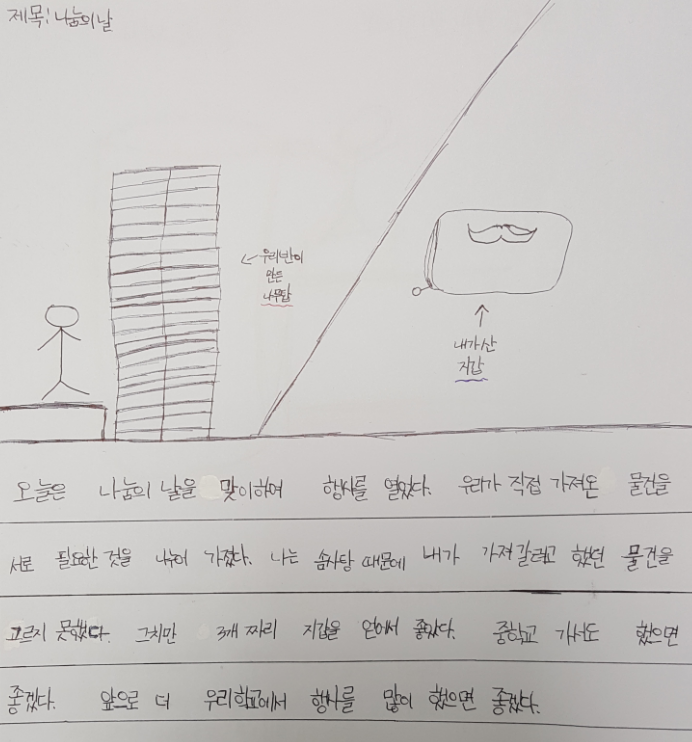 제목: 나눔의 날
우리반이
만든
나무탑
내가 산
지갑
오늘은 나눔의 날을 맞이하여 행사를 열었다. 우리가 직접 가져온 물건을
서로 필요한 것을 나누어 가졌다. 나는 솜사탕 때문에 내가 가져갈려고 했던 물건을
고르지 못했다. 그치만 3개 짜리 지갑을 얻어서 좋았다. 중학교 가서도 했으면
좋겠다. 앞으로 더 우리학교에서 행사를 많이 했으면 좋겠다.